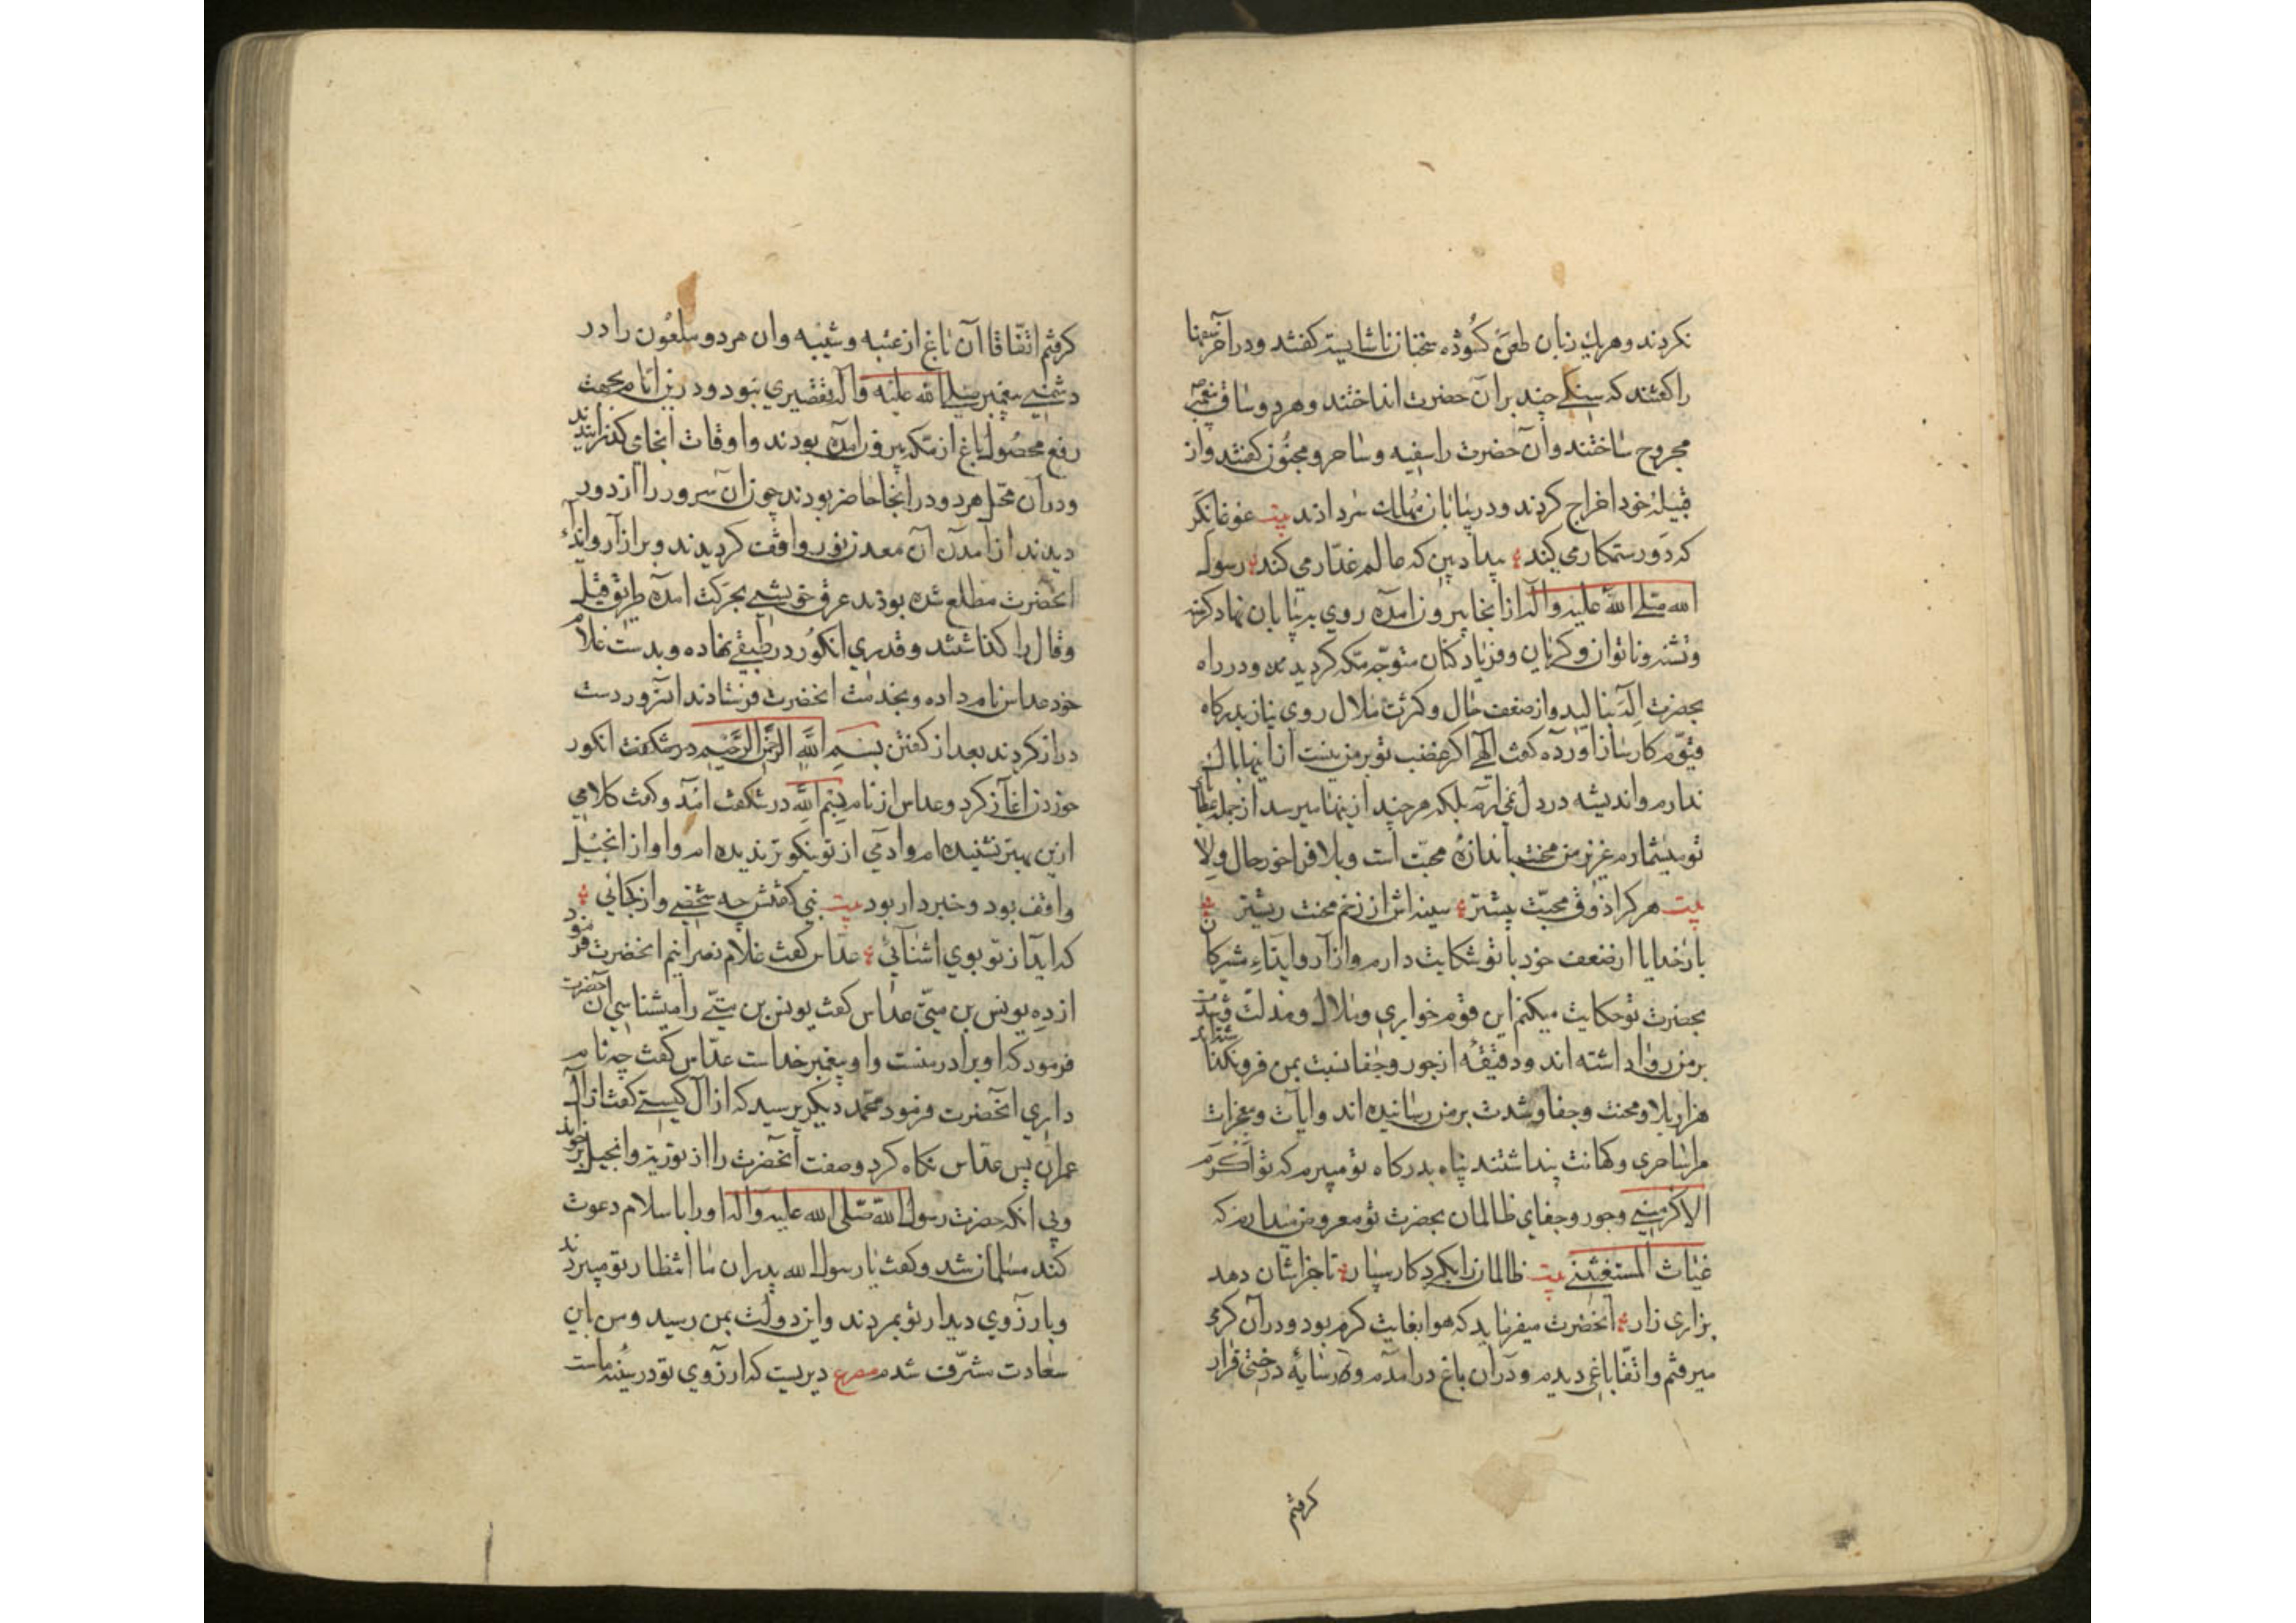 نکردند و هر یك زبان طعن کشوده سخنان ناشایسته کفتند و در آخر سفها
را کفتند که سنکی چند بر آن حضرت انداختند و هر دو ساق پیغمبر
مجروح ساختند و آن حضرت را سفیه و ساحر و مجنون کفتند و از
قبیله خود اخراج کردند و در بیابان مهالك سر دادند بیت غوغا نکر
که دور ستمکار می کند ؛ بیداد بین که عالم غدّار می کند ؛ رسول
الله صلی الله علیه واله از انجا بیرون امده روی به بیابان نهاد کرسنه
و تشنه و ناتوان و کریان و فریاد کنان متوجّه مکه کردیدند و در راه
بحضرت اله بنالید و از ضعف حال و کثرت ملال روی نیاز بدرکاه
قیّوم کارساز آورده کفت الهی اکر غضب تو بر من نیست از اینها باك
ندارم و اندیشه در دل نمی ارم بلکه هر چند از ینها میرسد از جمله عطای
تو میشمارم عزیز من محنت باندازهٔ محبّت است و بلا فراخور حال ولا
بیت هر کرا ذوق محبّت بیشتر ؛ سینه اش از زخم محنت ریشتر
بار خدایا از ضعف خود با تو شکایت دارم و از آزار و ایذاء مشرکان
بحضرت تو حکایت میکنم این قوم خواری و ملال و مذلّت و
بر من روا داشته اند و دقیقهٔ از جور و جفا نسبت بمن فرو نکذاشتند
هزار بلا و محنت و جفا و شدت بر من رسانیده اند و ایات و معجزات
مرا ساحری و کهانت پنداشتند پناه بدرکاه تو میبرم که تو اکرم
الاکرمینی و جور و جفای ظالمان بحضرت تو معروض میدارم که
غیاث المستغیثینی بیت ظالمان را بکردکار سپار ؛ تا جزاشان دهد
بزاری زار ؛ انحضرت میفرماید که هوا بغایت کرم بود و در آن کرمی
میرفتم و اتفاقا باغی دیدم و در آن باغ در امدم و در سایهٔ درختی قرار
کرفتم
کرفتم اتفاقا آن باغ از عتبه و شیبه و ان هر دو ملعون را در
دشمنی پیغمبر صلی الله علیه واله تقصیری نبود و در ین ایام بجهت
رفع محصول باغ از مکه بیرون امده بودند و اوقات انجای کذرانیدند
و در آن محل هر دو در انجا حاضر بودند چون آن سرور را از دور
دیدند از آمدن آن معدن نور واقف کردیدند و بر ازار و ایذاء
انحضرت مطلع شده بودند عرق خویشی بحرکت امده طریق قیل
و قال را کذاشتند و قدری انکور در طبقی نهاده و بدست غلام
خود عداس نام داده و بخدمت انحضرت فرستادند انسرور دست
دراز کردند بعد از کفتن بسم الله الرحمن الرحیم در شکفت انکور
خوردن اغاز کرد و عداس از نام بسم الله در شکفت امد و کفت کلامی
ازین بهتر نشنیده ام و ادمی از تو نیکوتر ندیده ام و او از انجیل
واقف بود و خبردار بود بیت نبی کفتش چه شخصی و از کجائی ؛
که اید از تو بوی اشنائی ؛ عداس کفت غلام نصرانیم انحضرت فرمود
از ده یونس بن متّی عداس کفت یونس بن متّی را میشناسی آن حضرت
فرمود که او برادر منست و او پیغمبر خداست عداس کفت چه نام
داری انحضرت فرمود محمّد دیکر پرسید که از آل کیستی کفت از آل
عمران پس عداس نکاه کرد و صفت انحضرت را از توریة و انجیل بر خواند
و بی انکه حضرت رسول الله صلی الله علیه واله او را باسلام دعوت
کند مسلمان شد و کفت یا رسول الله پدران ما انتظار تو میبردند
و بارزوی دیدار تو بمردند و این دولت بمن رسید و من باین
سعادت مشرّف شدم مصرع دیریست که ارزوی تو در سینه ماست